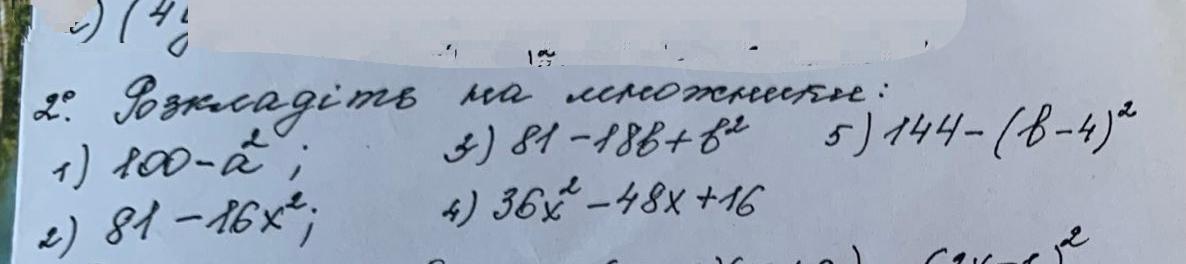 2) (4y
2°. Розкладіть на множники:
1) 100-a²; 3) 81-18b+b² 5) 144-(b-4)²
2) 81-16x²; 4) 36x²-48x+16